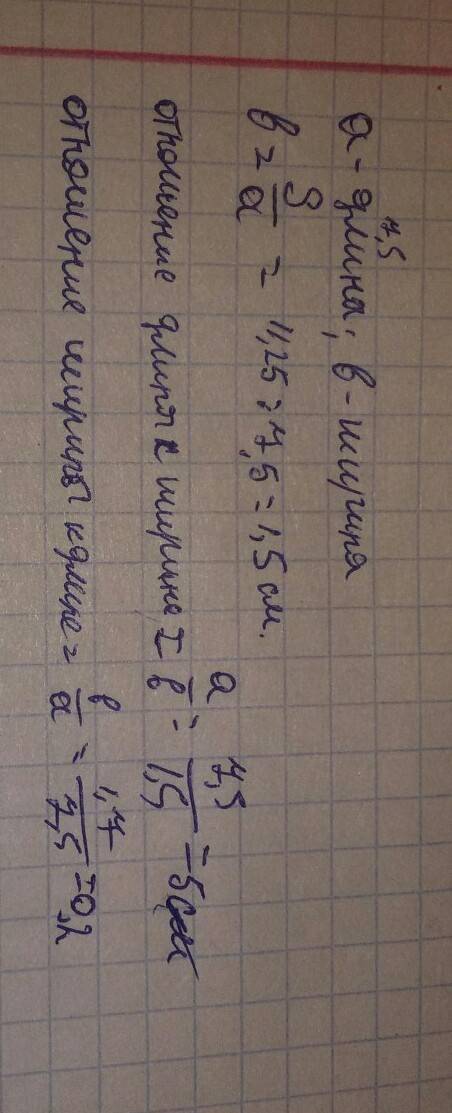 7,5
а - длина; в - ширина
в = S/a = 11,25 : 7,5 = 1,5 см.
отношение длины к ширине = a/в = 7,5/1,5 = 5
отношение ширины к длине = в/a = 1,7/7,5 = 0,2